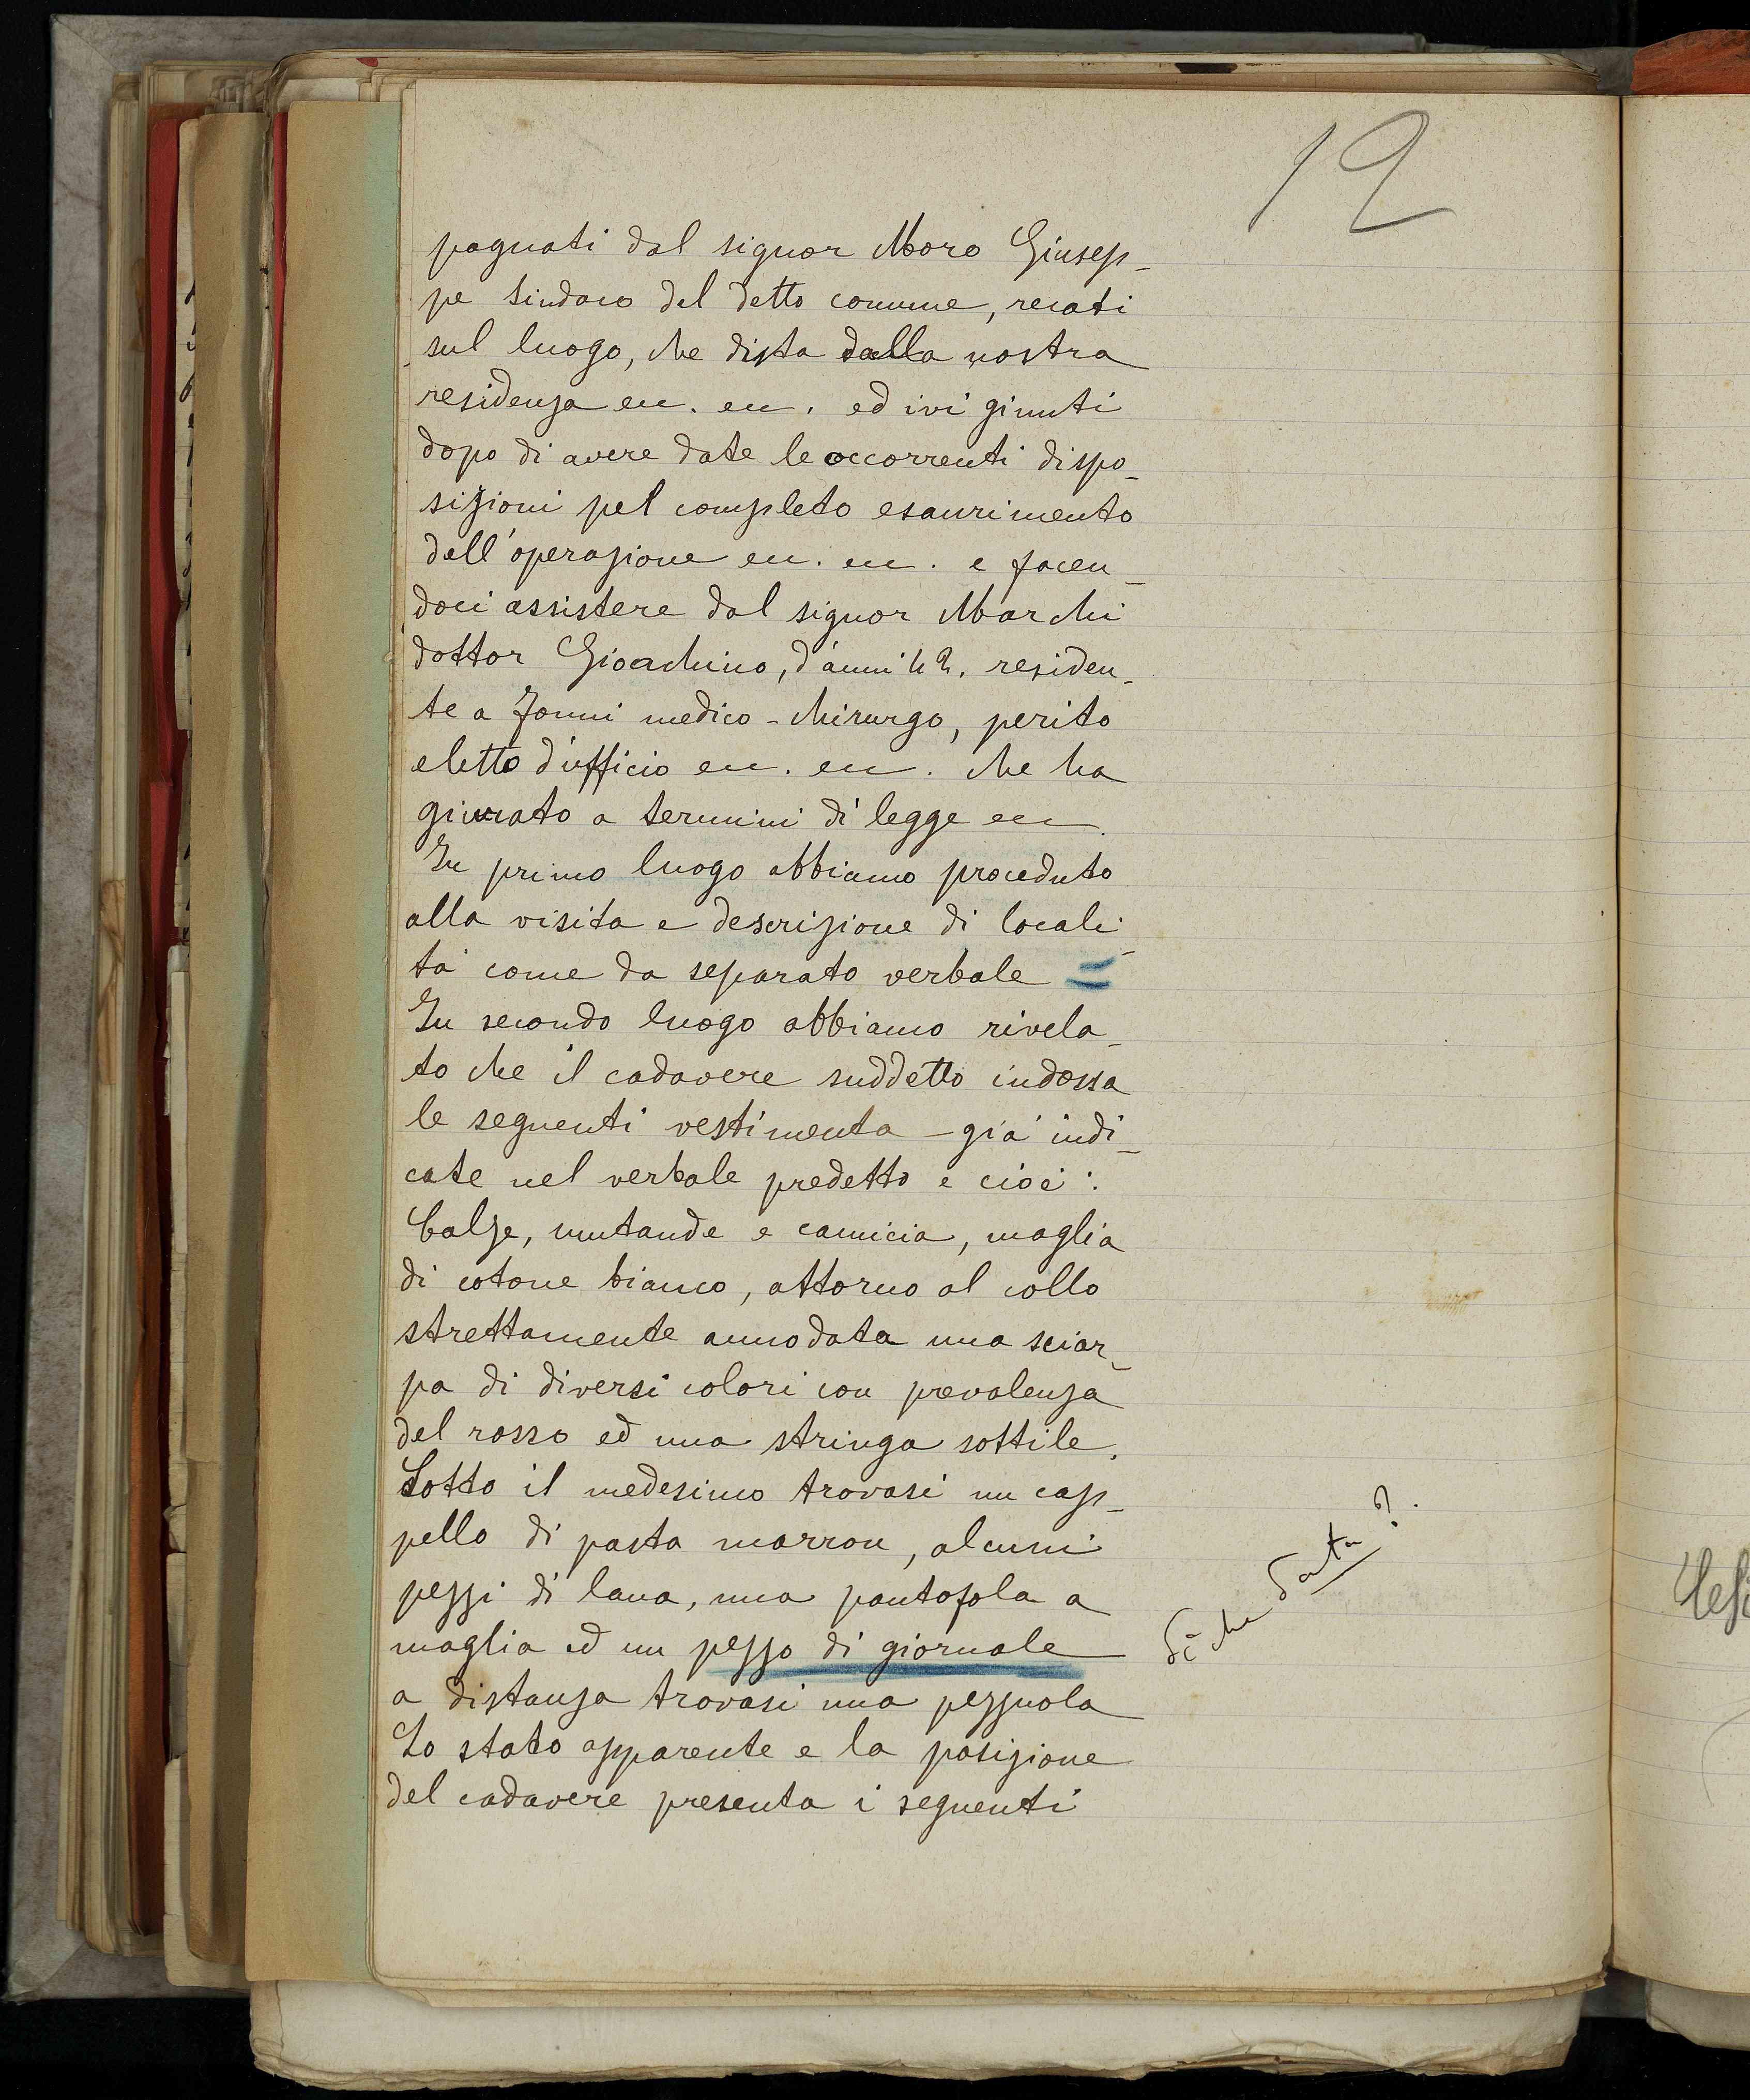 12
pagnati dal signor Moro Giusep-
pe sindaco del detto comune, recati
sul luogo, che dista dalla nostra
residenza ecc. ecc. ed ivi giunti
dopo di avere date le occorrenti dispo-
sizioni pel completo esaurimento
dell'operazione ecc. ecc. e facen-
doci assistere dal signor Marchi
dottor Gioachino, d'anni 42. residen-
te a Fanni medico-chirurgo, perito
eletto d'ufficio ecc. ecc. che ha
giurato a termini di legge ecc.
In primo luogo abbiamo proceduto
alla visita e descrizione di locali-
tà come da separato verbale =
In secondo luogo abbiamo rivela-
to che il cadavere suddetto indossa
le seguenti vestimenta - già indi-
cate nel verbale predetto e cioè:
Calze, mutande e camicia, maglia
di cotone bianco, attorno al collo
strettamente annodata una sciar-
pa di diversi colori con prevalenza
del rosso ed una stringa sottile.
Sotto il medesimo trovasi un cap-
pello di pasta marron, alcuni
pezzi di lana, una pantofola a
maglia ed un pezzo di giornale
di che data?
a distanza trovasi una pezzuola
Lo stato apparente e la posizione
del cadavere presenta i seguenti